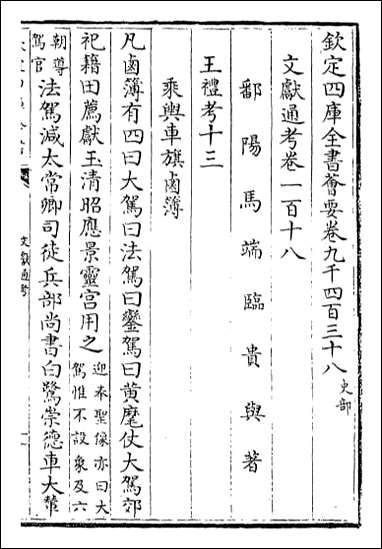 欽定四庫全書薈要卷九千四百三十八 史部
文獻通考卷一百十八
鄱陽馬端臨貴與著
王禮考十三
乘輿車旗鹵簿
凡鹵簿有四曰大駕曰法駕曰鑾駕曰黃麾仗大駕郊
祀籍田薦獻玉清昭應景靈宮用之迎奉聖像亦曰大
駕惟不設象及六
朝導
駕官法駕減太常卿司徒兵部尚書白鷺崇德車大輦
文獻通考
一